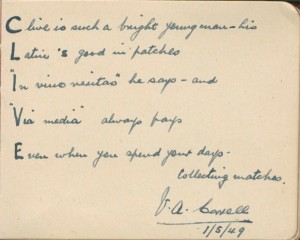 Clive is such a bright young man - his
Latin's good in patches
"In vino veritas" he says - and
"Via media" always pays
Even when you spend your days -
Collecting matches.
V. A.
1/5/49